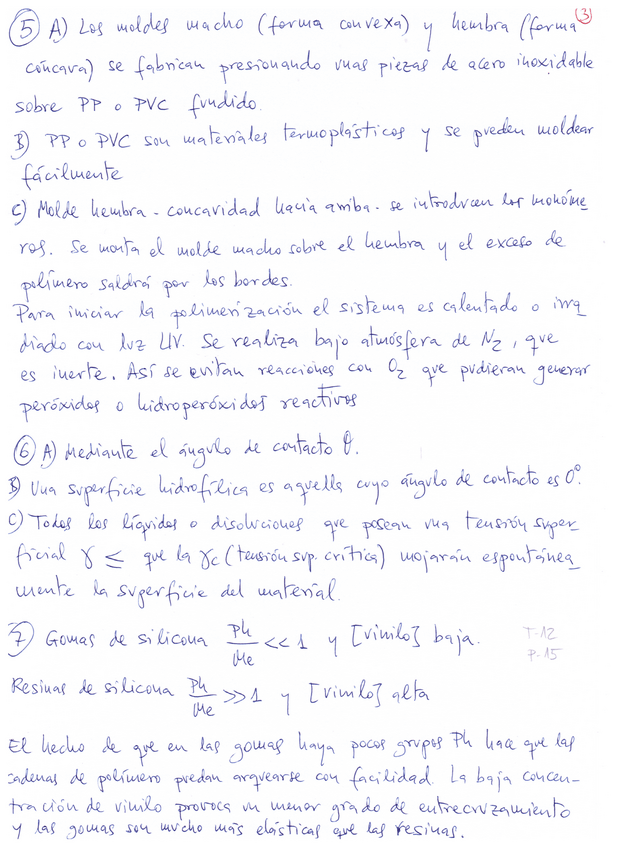 3
5 A) Los moldes macho (forma convexa) y hembra (forma
cóncava) se fabrican presionando unas piezas de acero inoxidable
sobre PP o PVC fundido.
B) PP o PVC son materiales termoplásticos y se pueden moldear
fácilmente
C) Molde hembra - concavidad hacia arriba - se introducen los monóme_
ros. Se monta el molde macho sobre el hembra y el exceso de
polímero saldrá por los bordes.
Para iniciar la polimerización el sistema es calentado o irra_
diado con luz UV. Se realiza bajo atmósfera de N2, que
es inerte. Así se evitan reacciones con O2 que pudieran generar
peróxidos o hidroperóxidos reactivos
6 A) Mediante el ángulo de contacto θ.
B) Una superficie hidrofílica es aquella cuyo ángulo de contacto es 0°.
C) Todos los líquidos o disoluciones que posean una tensión super_
ficial γ ≤ que la γc (tensión sup. crítica) mojarán espontánea_
mente la superficie del material.
7 Gomas de silicona Ph/Me <<1 y [vinilo] baja.
T-12
P-15
Resinas de silicona Ph/Me >>1 y [vinilo] alta
El hecho de que en las gomas haya pocos grupos Ph hace que las
cadenas de polímero puedan arquearse con facilidad. La baja concen-
tración de vinilo provoca un menor grado de entrecruzamiento
y las gomas son mucho más elásticas que las resinas.